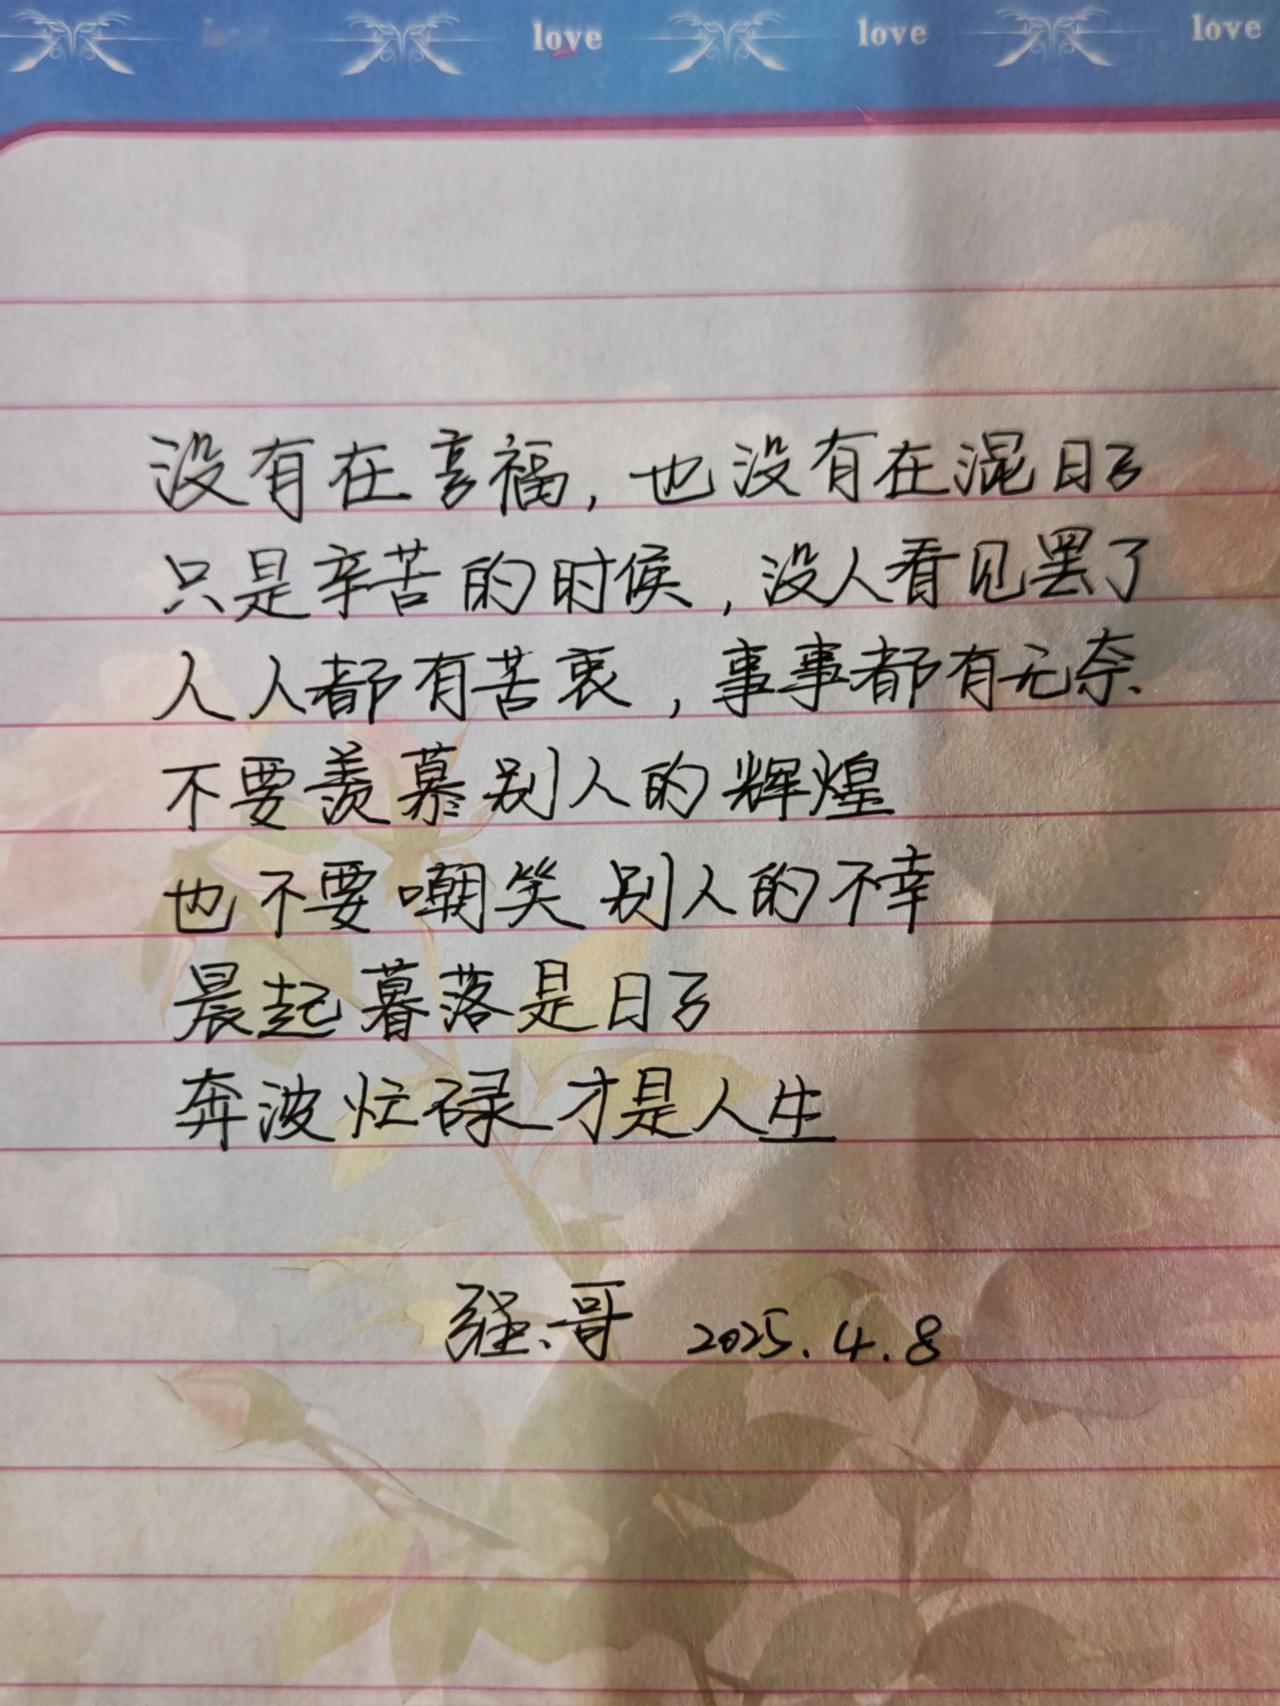 love love love
没有在享福，也没有在混日子
只是辛苦的时候，没人看见罢了
人人都有苦衷，事事都有无奈、
不要羡慕别人的辉煌
也不要嘲笑别人的不幸
晨起暮落是日子
奔波忙碌才是人生
强哥 2025.4.8